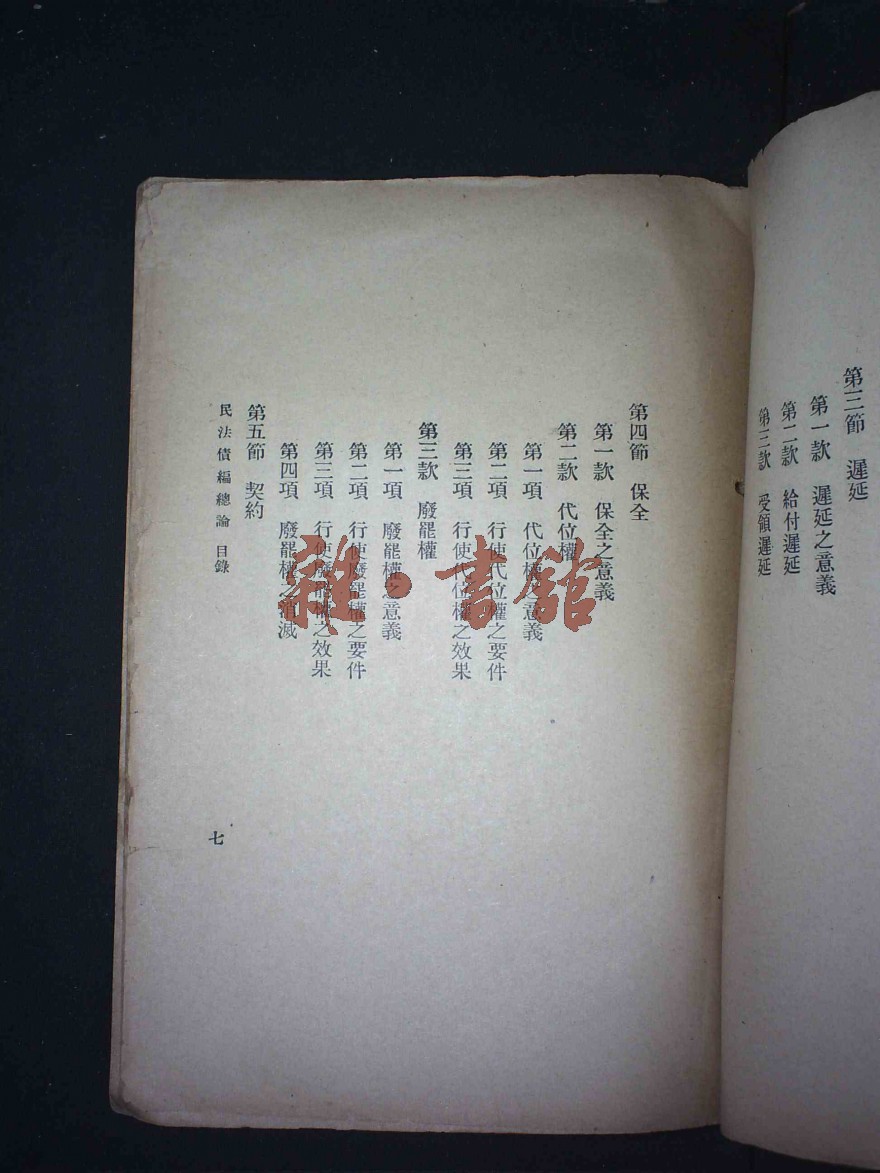 第三節　遲延
第一款　遲延之意義
第二款　給付遲延
第三款　受領遲延
第四節　保全
第一款　保全之意義
第二款　代位權
第一項　代位權之意義
第二項　行使代位權之要件
第三項　行使代位權之效果
第三款　廢罷權
第一項　廢罷權之意義
第二項　行使廢罷權之要件
第三項　行使廢罷權之效果
第四項　廢罷權之消滅
第五節　契約
民法債編總論　目錄
七
雜·書館